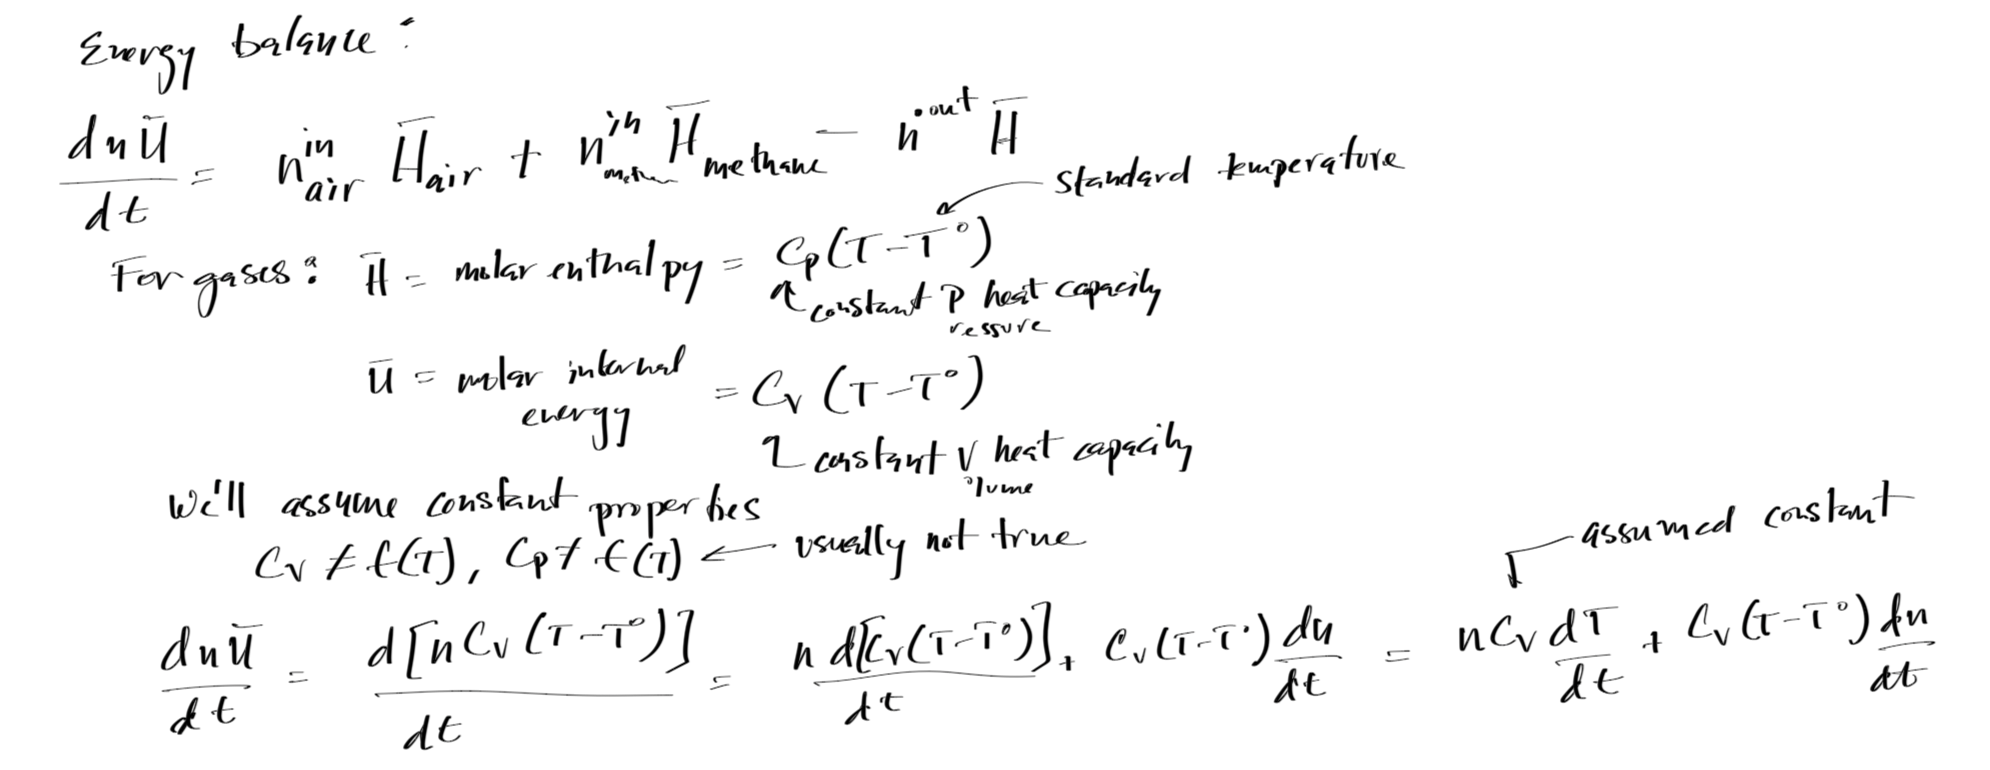 Energy balance:
dnŪ/dt = n^in_air H̄_air + n^in_methane H̄_methane - ṅ^out H̄
standard temperature
For gases: H̄ = molar enthalpy = Cp(T-T°)
constant P heat capacity
ressure
Ū = molar internal energy = Cv (T-T°)
constant V heat capacity
olume
We'll assume constant properties
Cv ≠ f(T), Cp ≠ f(T) ← usually not true
assumed constant
dnŪ/dt = d[nCv(T-T°)]/dt = n d[Cv(T-T°)]/dt + Cv(T-T°) dn/dt = nCv dT/dt + Cv(T-T°) dn/dt